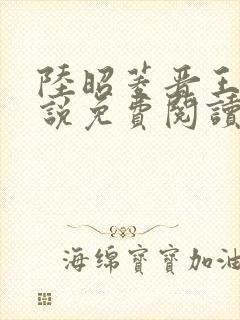 陸昭菱晉王
說免費閱讀
海绵寶寶加油